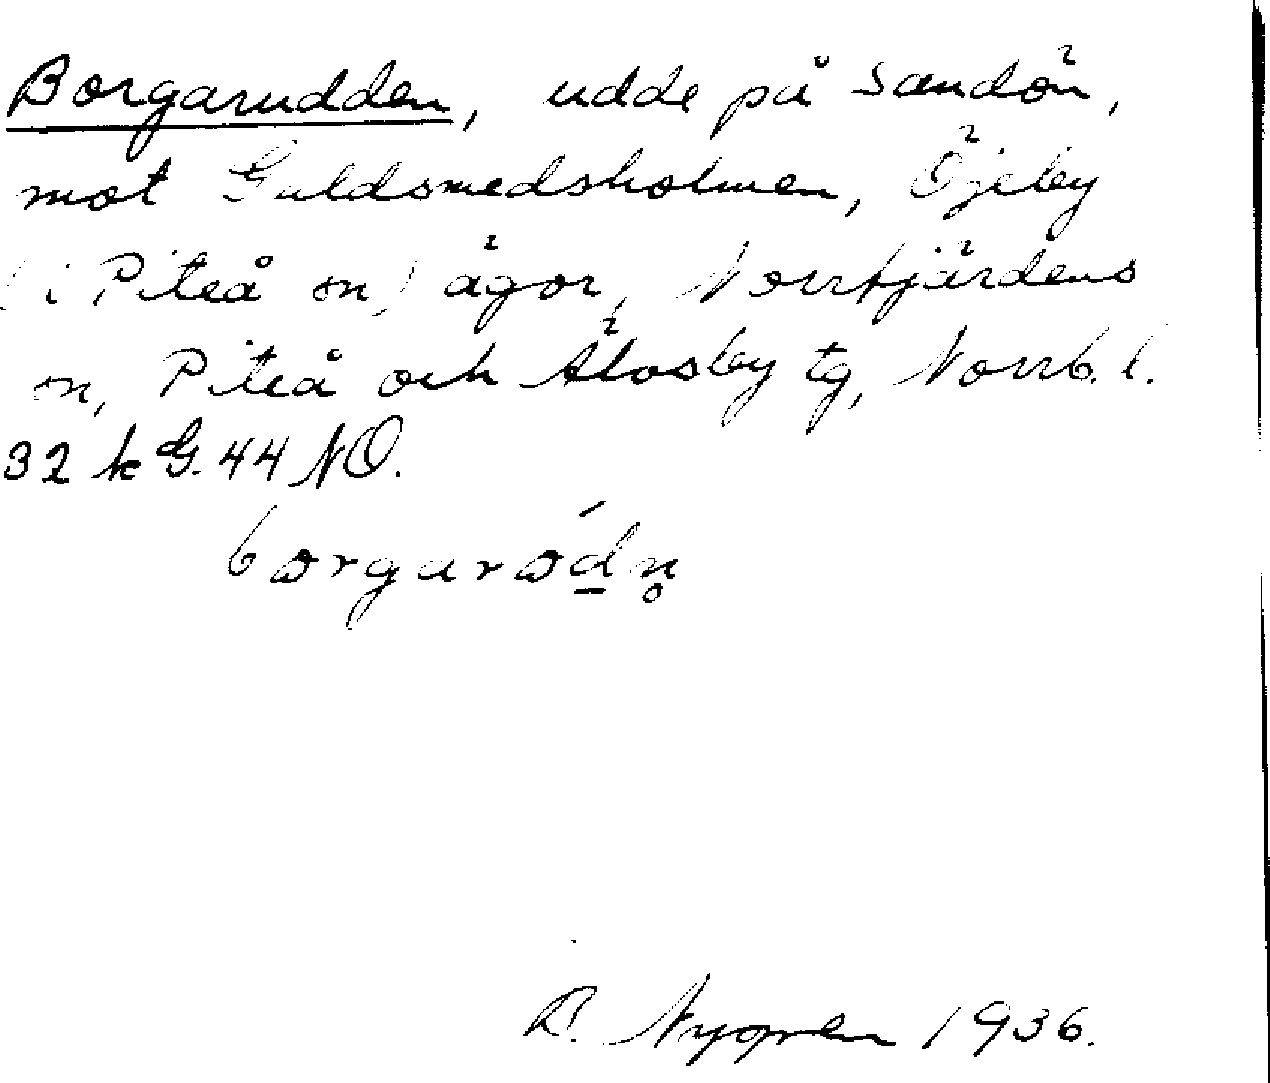 Borgarudden, udde på Sandön,
mot Guldsmedsholmen, Öjeby
(i Piteå sn) ägor, Norrfjärdens
sn, Piteå och Älvsby tg, Norrb. l.
32 k G. 44 NO.
R. Nygren 1936.